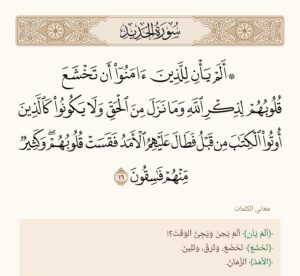 سُورَةُ الحَدِيدِ
۞ أَلَمْ يَأْنِ لِلَّذِينَ ءَامَنُوٓا۟ أَن تَخْشَعَ
قُلُوبُهُمْ لِذِكْرِ ٱللَّهِ وَمَا نَزَلَ مِنَ ٱلْحَقِّ وَلَا يَكُونُوا۟ كَٱلَّذِينَ
أُوتُوا۟ ٱلْكِتَـٰبَ مِن قَبْلُ فَطَالَ عَلَيْهِمُ ٱلْأَمَدُ فَقَسَتْ قُلُوبُهُمْ ۖ وَكَثِيرٌ
مِّنْهُمْ فَـٰسِقُونَ ١٦
معاني الكلمات
﴿أَلَمْ يَأْنِ﴾ أَلَمْ يَحِنْ وَيَجِئِ الوَقْتُ؟!
﴿تَخْشَعَ﴾ تَخْضَعَ، وَتَرِقَّ، وَتَلِينَ.
﴿الأَمَدُ﴾ الزَّمَانُ.